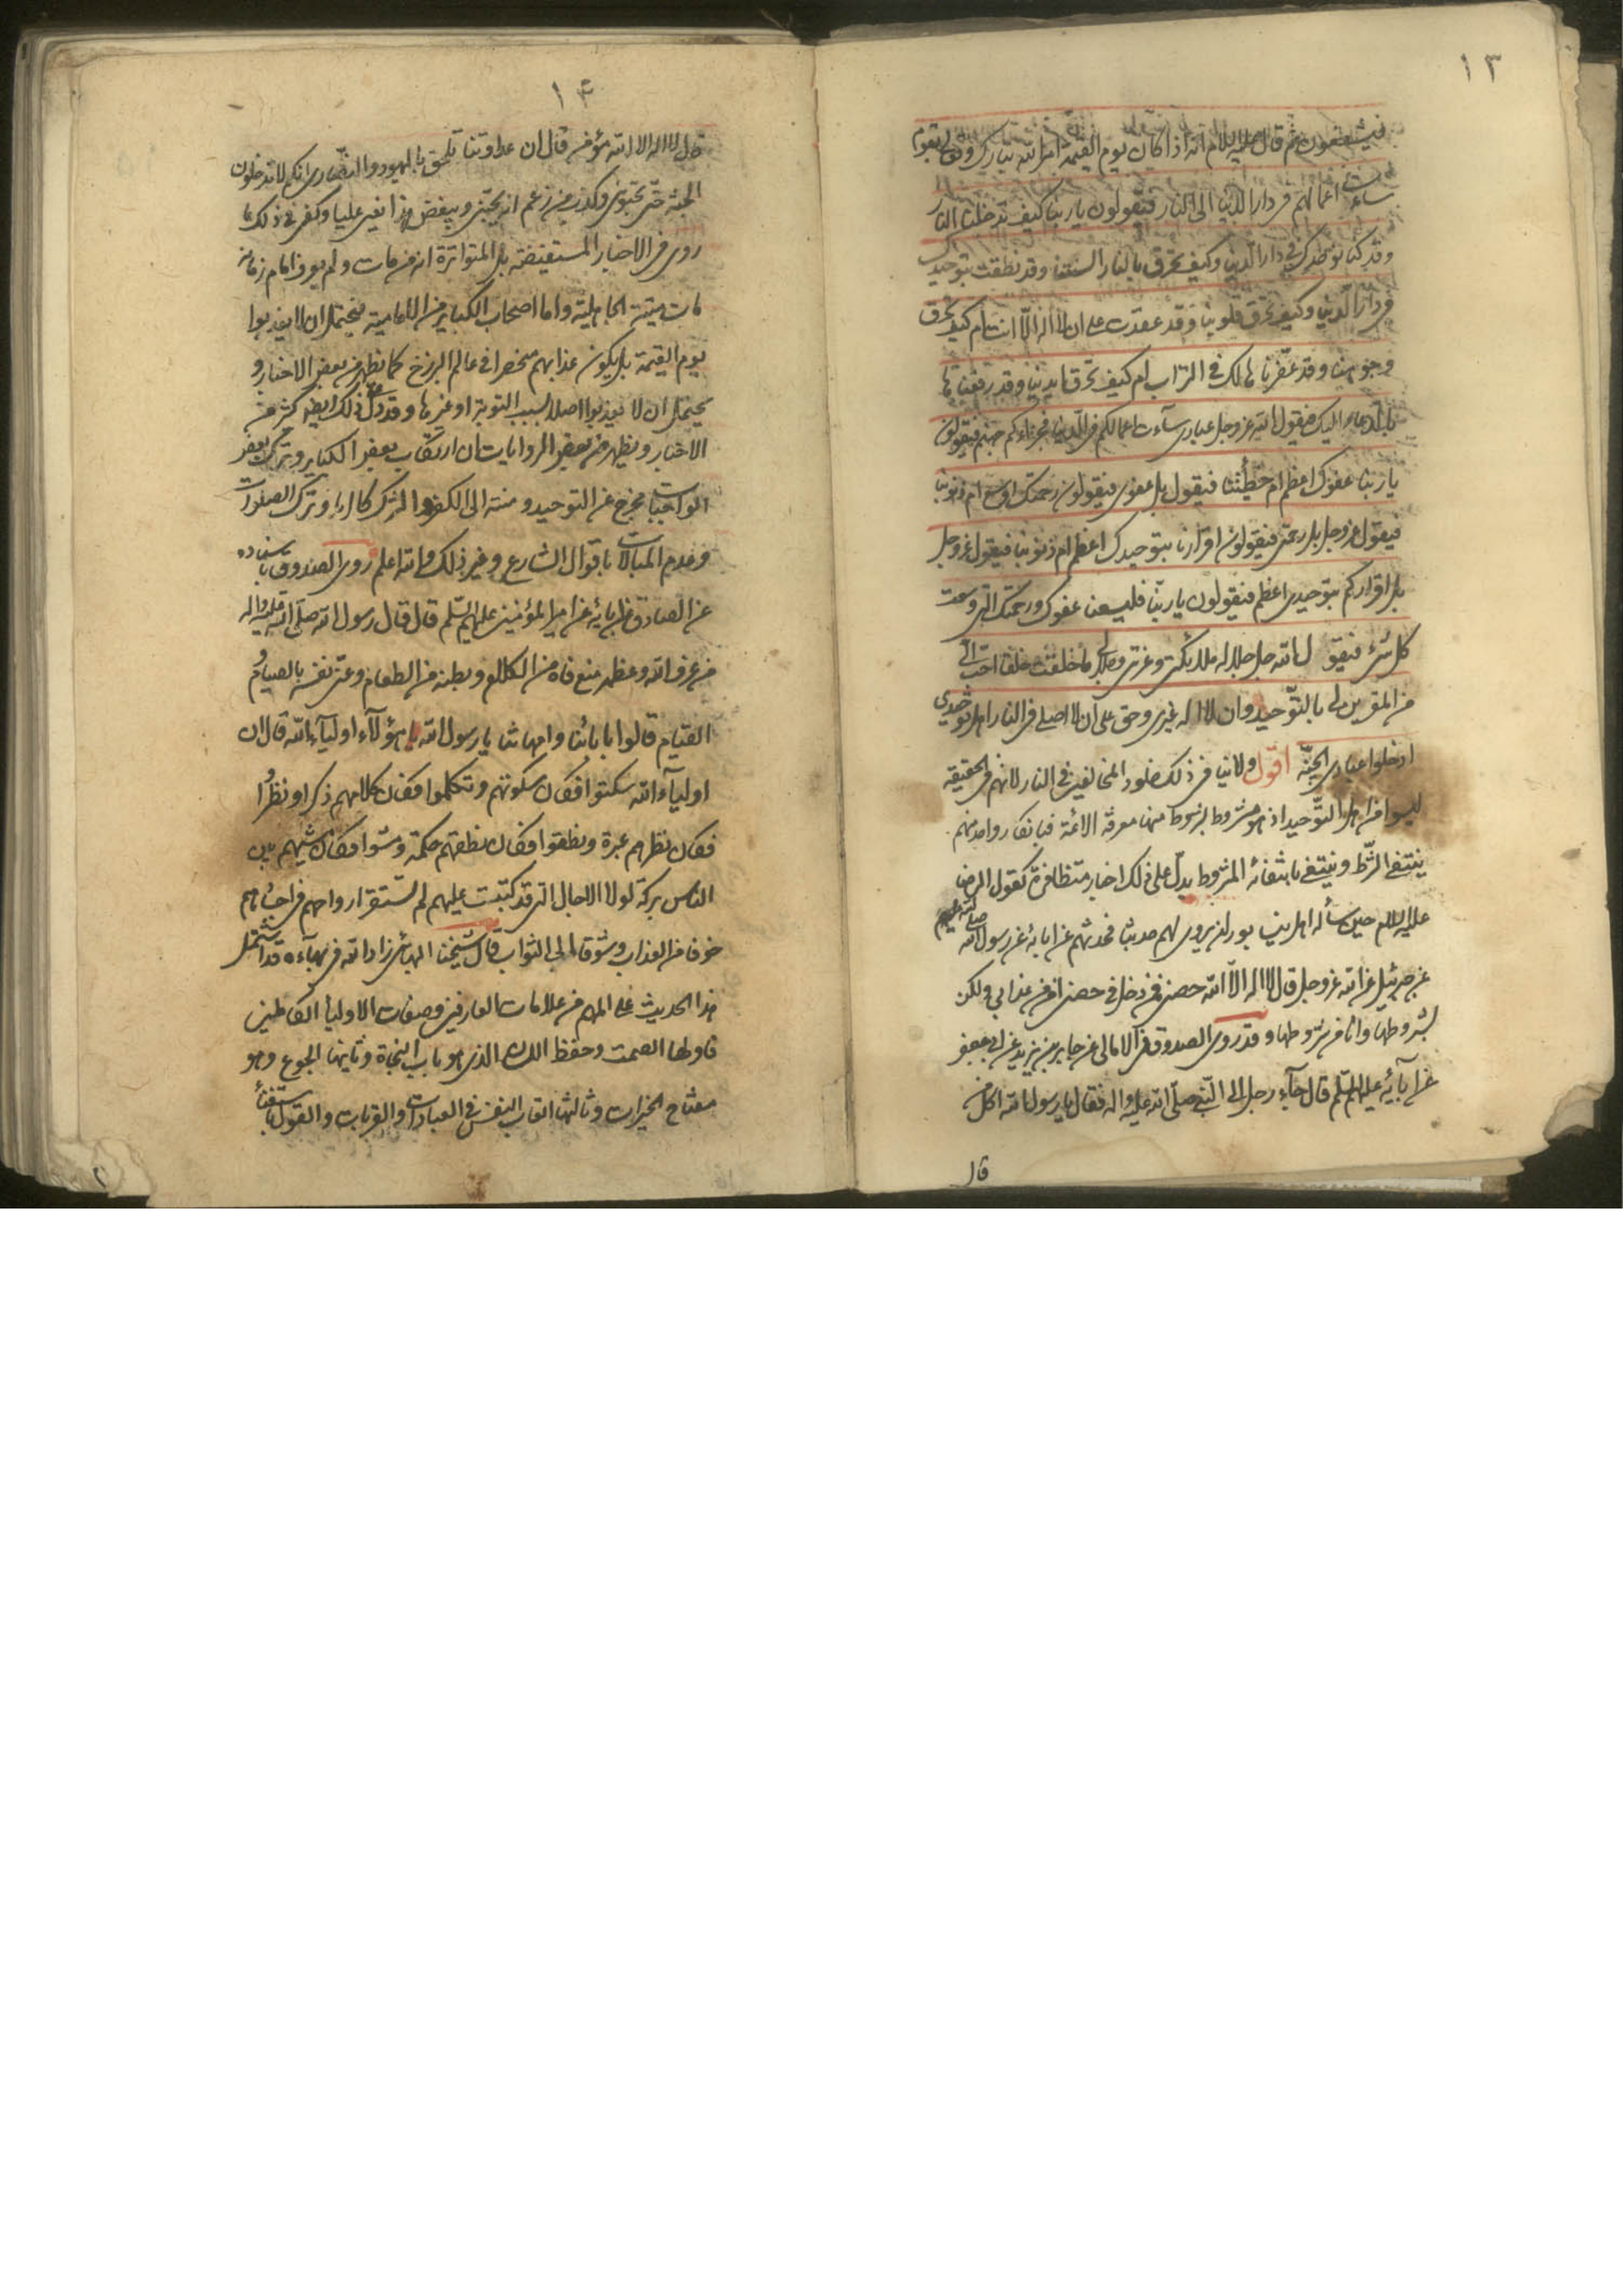 ١٣
فيشفعون ثم قال عليه السلام انه اذا كان يوم القيمة امر الله تبارك وتعالى بقوم
ساءت اعمالهم في دار الدنيا الى النار فيقولون يا ربنا كيف تدخلنا النار
وقد كنا نوحدك في دار الدنيا وكيف تحرق بالنار السنتنا وقد نطقت بتوحيدك
في دار الدنيا وكيف تحرق قلوبنا وقد عقدت على ان لا اله الا انت ام كيف تحرق
وجوهنا وقد عفرناها لك في التراب ام كيف تحرق ايدينا وقد رفعناها
بالدعاء اليك فيقول الله عز وجل عبادي ساءت اعمالكم في الدنيا فجزاءكم جهنم فيقولون
يا ربنا عفوك اعظم ام خطيئتنا فيقول بل عفوي فيقولون رحمتك اوسع ام ذنوبنا
فيقول عز وجل بل رحمتي فيقولون اقرارنا بتوحيدك اعظم ام ذنوبنا فيقول عز وجل
بل اقراركم بتوحيدي اعظم فيقولون يا ربنا فليسعنا عفوك ورحمتك التي وسعت
كل شيء فيقول الله جل جلاله ملائكتي وعزتي وجلالي ما خلقت خلقا احب الي
من المقرين لي بالتوحيد وان لا اله غيري وحق علي ان لا اصلي في النار اهل توحيدي
ادخلوا عبادي الجنة اقول ولا ينافي ذلك خلود المخالفين في النار لانهم في الحقيقة
ليسوا من اهل التوحيد اذ هو مشروط بشروط منها معرفة الائمة فبانكار واحد منهم
ينتفي الشرط وينتفي بانتفائه المشروط يدل على ذلك اخبار متظافرة كقول الرضا
عليه السلام حين سأله اهل نيسابور ان يروي لهم حديثا فحدثهم عن ابائه عن رسول الله صلى الله عليهم
عن جبرئيل عن الله عز وجل قال لا اله الا الله حصني فمن دخل في حصني امن من عذابي ولكن
بشروطها وانا من شروطها وقد روى الصدوق في الامالي عن جابر بن يزيد عن ابي جعفر
عن آبائه عليهم السلم قال جاء رجل الى النبي صلى الله عليه واله فقال يا رسول الله اكل من
قال
١٤
قال لا اله الا الله مؤمن قال ان عداوتنا تلحق باليهود والنصارى انكم لا تدخلون
الجنة حتى تحبوني وكذب من زعم انه يحبني ويبغض هذا يعني عليا وكفى في ذلك ما
روى في الاخبار المستفيضة بل المتواترة انه من مات ولم يعرف امام زمانه
مات ميتة الجاهلية واما اصحاب الكبائر من الامامية فيحتمل ان لا يعذبوا
يوم القيمة بل يكون عذابهم منحصرا في عالم البرزخ كما يظهر من بعض الاخبار و
يحتمل ان لا يعذبوا اصلا بسبب التوبة او غيرها وقد دل على ذلك ايضا كثير من
الاخبار ويظهر من بعض الروايات ان ارتكاب بعض الكبائر وترك بعض
الواجبات مخرج عن التوحيد ومنته الى الكفر والشرك كالرياء وترك الصلوات
وعدم المبالات باقوال الشارع وغير ذلك والله اعلم روى الصدوق باسناده
عن الصادق عن ابائه عن امير المؤمنين عليهم السلم قال قال رسول الله صلى الله عليه واله
من عرف الله وعظمه منع فاه من الكلام وبطنه من الطعام وعنى نفسه بالصيام و
القيام قالوا بابائنا وامهاتنا يا رسول الله هؤلاء اولياء الله قال ان
اولياء الله سكتوا فكان سكوتهم وتكلموا فكان كلامهم ذكرا ونظروا
فكان نظرهم عبرة ونطقوا فكان نطقهم حكمة ومشوا فكان مشيهم بين
الناس بركة لولا الاجال التي قد كتبت عليهم لم تستقر ارواحهم في اجسادهم
خوفا من العذاب وشوقا الى الثواب قال شيخنا البهائي زاد الله في بهاءه قد اشتمل
هذا الحديث على المهم من علامات العارفين وصفات الاولياء الكاملين
فاولها الصمت وحفظ اللسان الذي هو باب النجاة وثانيها الجوع وهو
مفتاح الخيرات وثالثها اتعاب النفس في العبادات والقربات والقول باستغناء